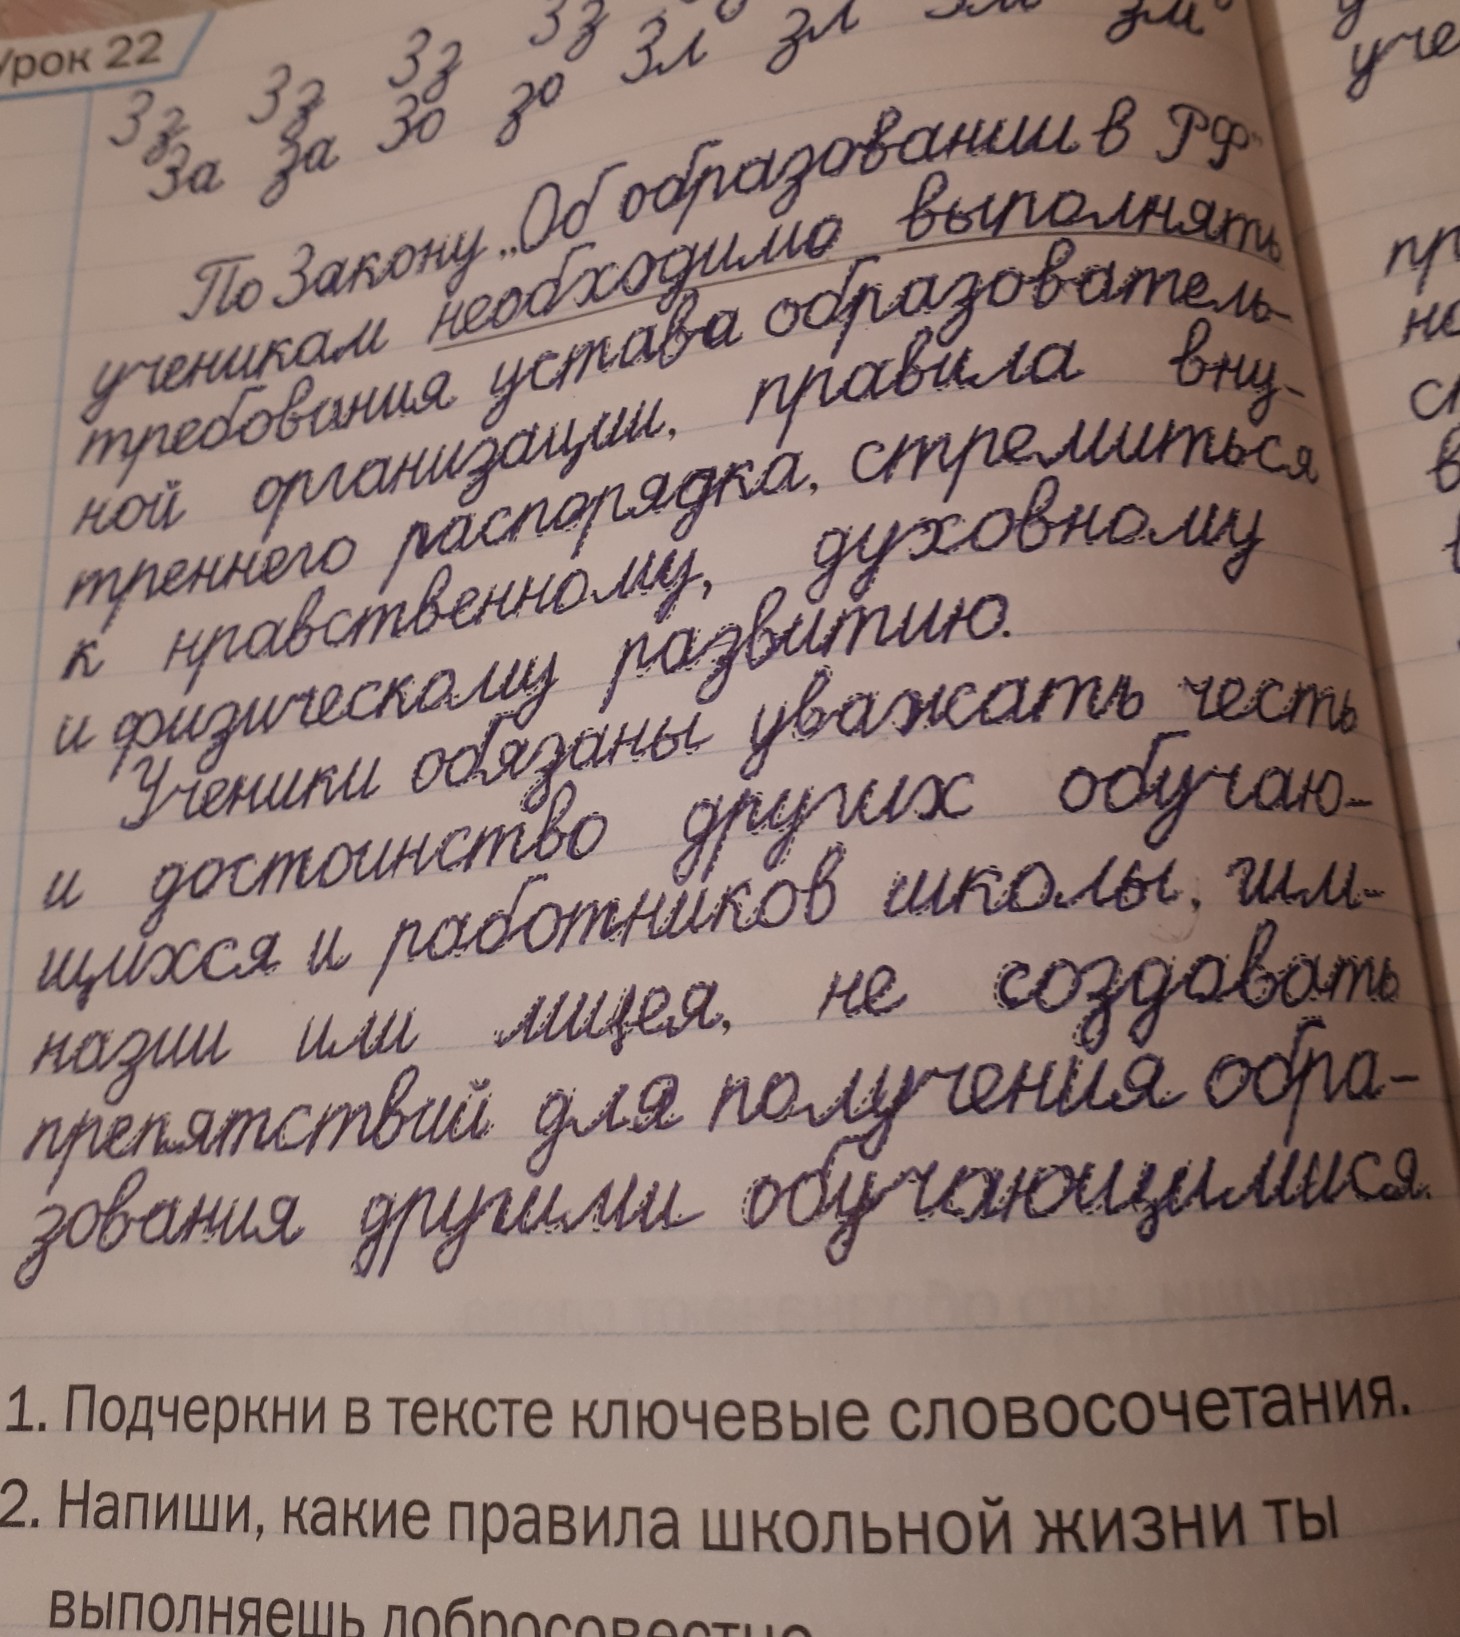 Урок 22
Зз Зз Зз Зз
За за Зо зо Зл зл зм
По Закону „Об образовании в РФ"
ученикам необходимо выполнять
требования устава образователь-
ной организации, правила вну-
треннего распорядка, стремиться
к нравственному, духовному
и физическому развитию.
Ученики обязаны уважать честь
и достоинство других обучаю-
щихся и работников школы, гим-
назии или лицея, не создавать
препятствий для получения обра-
зования другими обучающимися.
1. Подчеркни в тексте ключевые словосочетания.
2. Напиши, какие правила школьной жизни ты
выполняешь добросовестно.